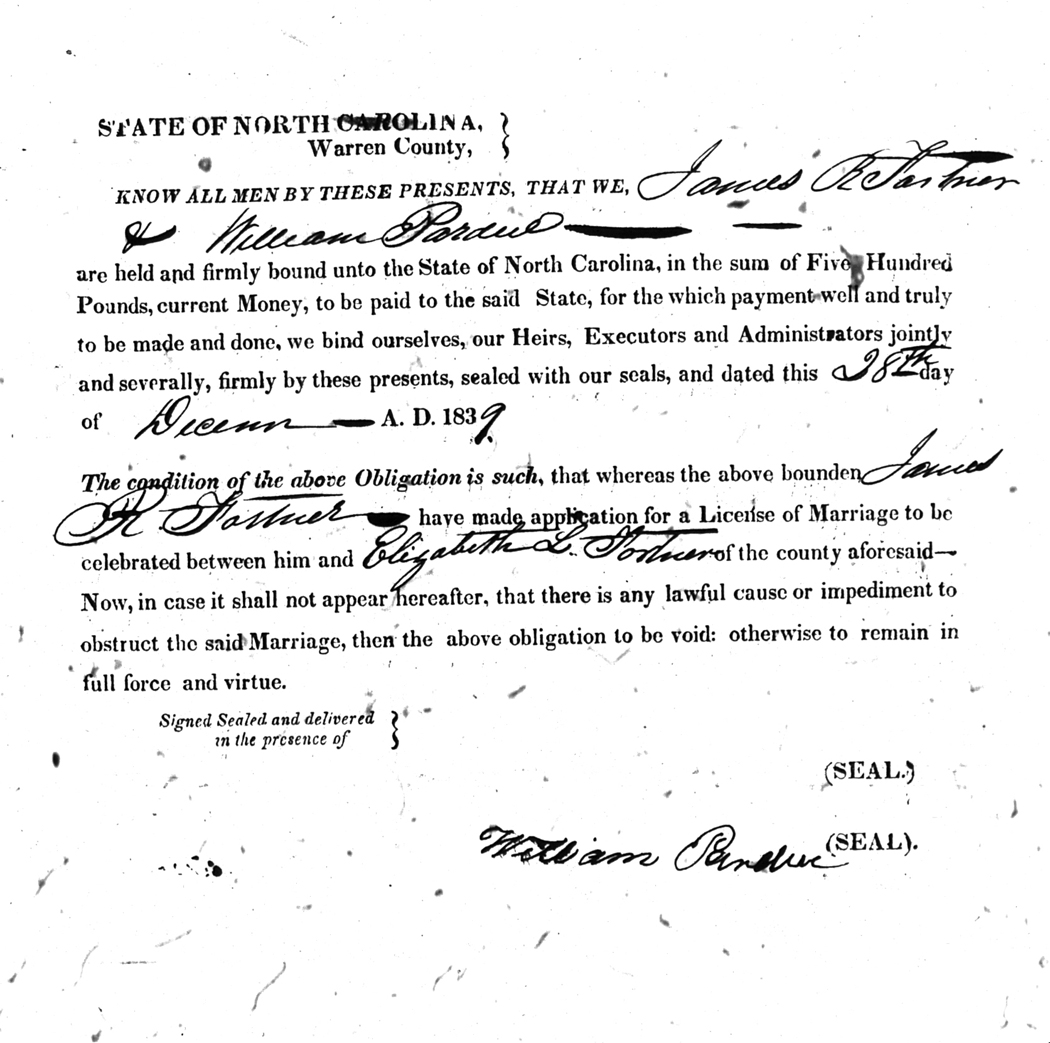 STATE OF NORTH CAROLINA,
Warren County,
KNOW ALL MEN BY THESE PRESENTS, THAT WE, James R Fortner
& William Pardue
are held and firmly bound unto the State of North Carolina, in the sum of Five Hundred
Pounds, current Money, to be paid to the said State, for the which payment well and truly
to be made and done, we bind ourselves, our Heirs, Executors and Administrators jointly
and severally, firmly by these presents, sealed with our seals, and dated this 28th day
of Decem A. D. 1839.
The condition of the above Obligation is such, that whereas the above bounden James
R Fortner have made application for a License of Marriage to be
celebrated between him and Elizabeth L. Fortner of the county aforesaid—
Now, in case it shall not appear hereafter, that there is any lawful cause or impediment to
obstruct the said Marriage, then the above obligation to be void: otherwise to remain in
full force and virtue.
Signed Sealed and delivered
in the presence of
(SEAL.)
William Pardue (SEAL).